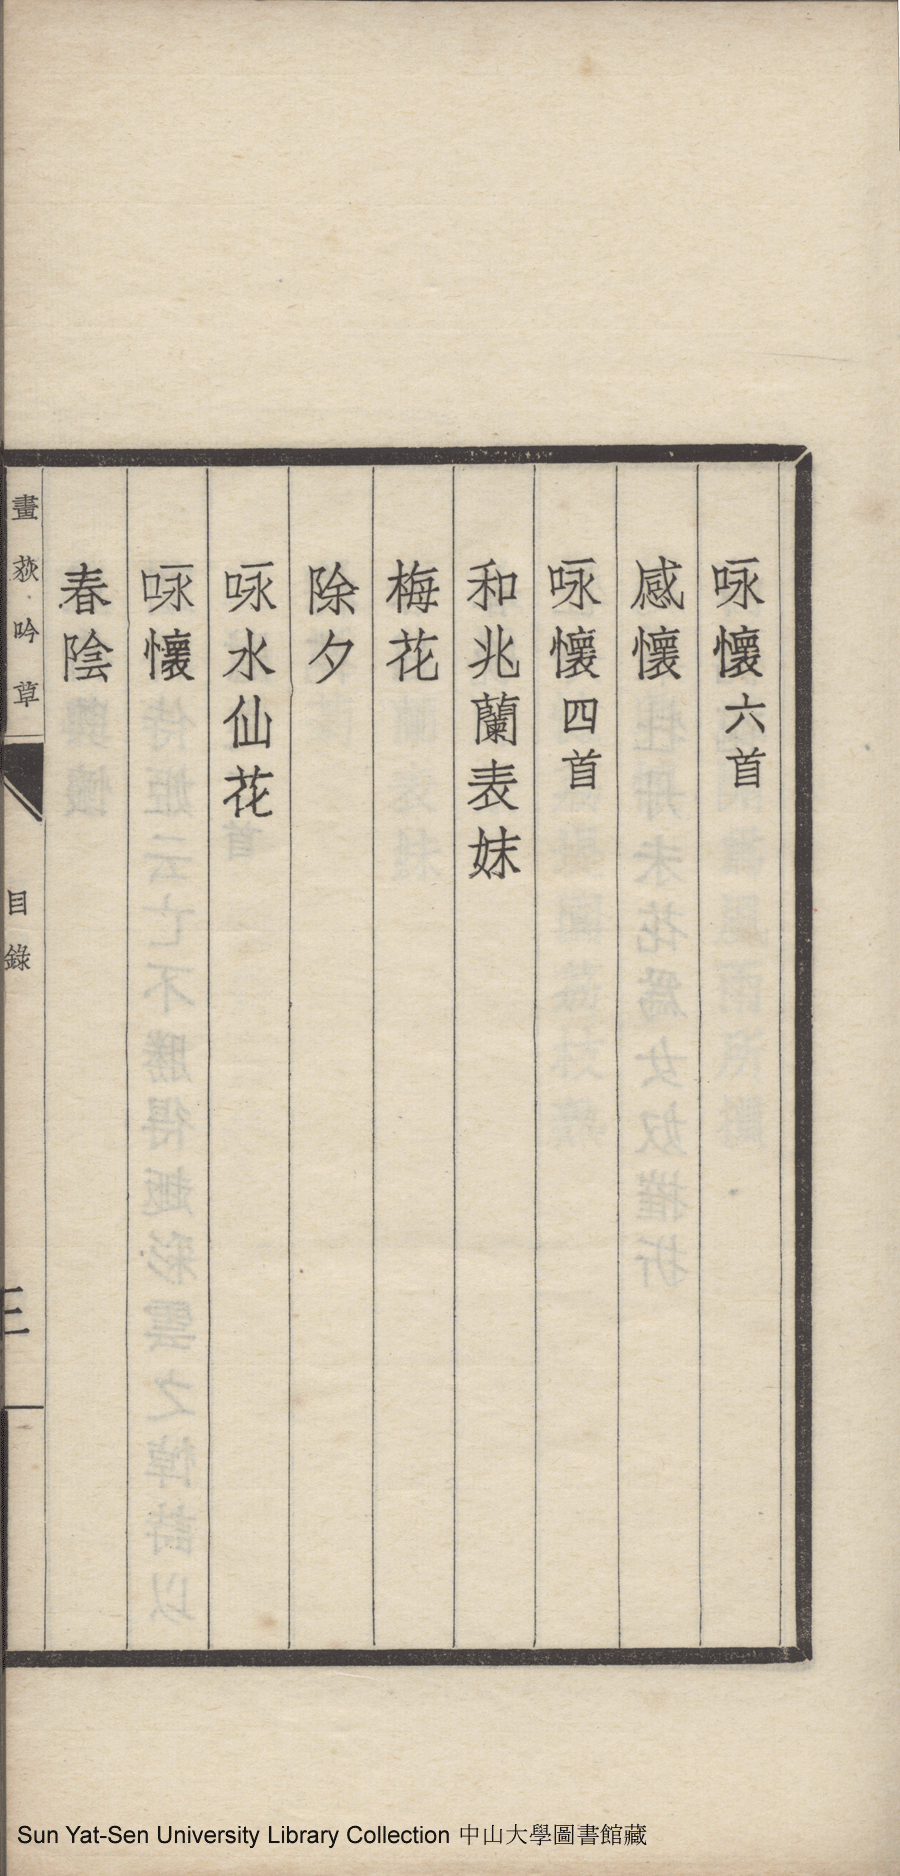 咏懷六首
感懷
咏懷四首
和兆蘭表妹
梅花
除夕
咏水仙花
咏懷
春陰
畫荻吟草
目錄
三
Sun Yat-Sen University Library Collection 中山大學圖書館藏